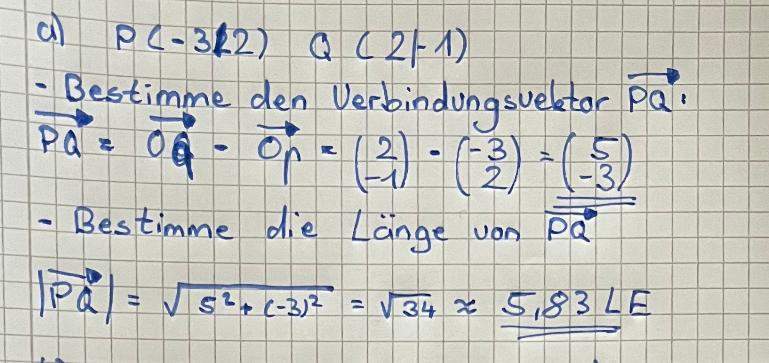 a) P(-3|2) Q(2|-1)
- Bestimme den Verbindungsvektor PQ⃗:
PQ⃗ = OQ⃗ - Op⃗ = (2 -1) - (-3 2) = (5 -3)
- Bestimme die Länge von PQ⃗
|PQ⃗| = √5²+(-3)² = √34 ≈ 5,83 LE